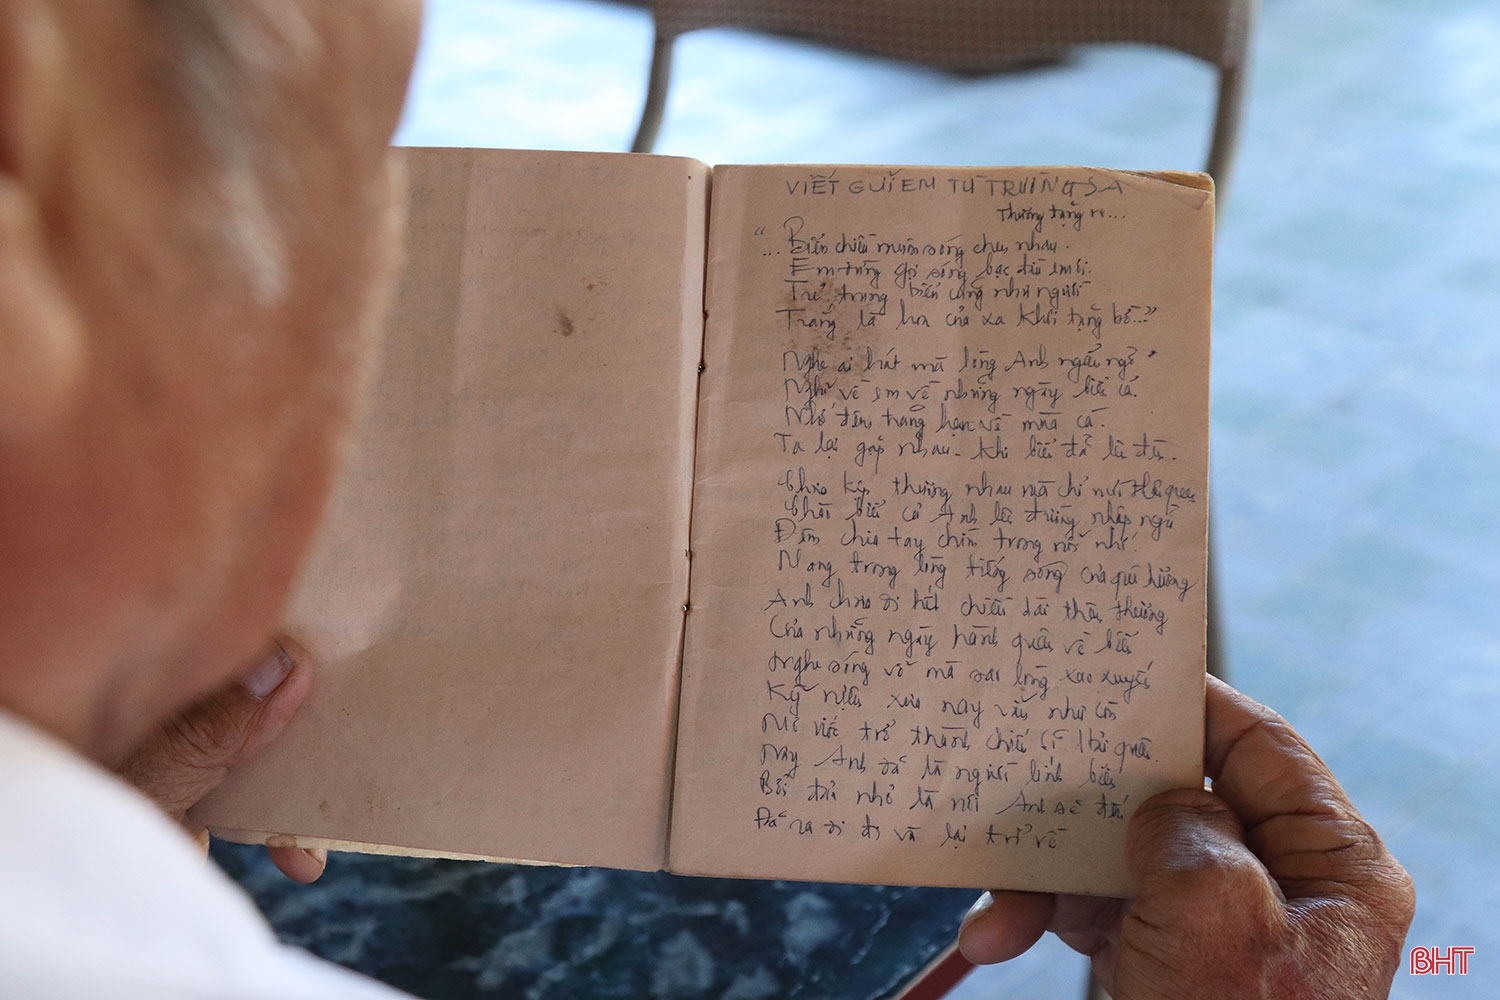 VIẾT GỬI EM TỪ TRƯỜNG SA
Thương tặng
"... Biển chiều muôn sóng cho nhau.
Em từng gọi sóng bạc đầu em ơi.
Trẻ trung biển cũng như người
Trắng là hoa của xa khơi tặng bờ..."
Nghe ai hát mà lòng Anh ngẩn ngơ
Nghĩ về em về những ngày biển cả.
Nhớ đêm trăng hẹn về mùa cá.
Ta lại gặp nhau. Khi biển đã lên đèn.
Chưa kịp thương nhau mà chỉ mới
biển cả Anh lên đường nhập ngũ
Đêm chia tay chìm trong nỗi nhớ.
Mang trong lòng tiếng sóng của quê hương
Anh chưa đi hết chiều dài thân thương
Của những ngày hành quân về biển
Nghe sóng vỗ mà sao lòng xao xuyến
Kỷ niệm xưa nay vẫn như còn
Mơ ước trở thành chiến sĩ Hải quân.
Nay Anh đã là người lính biển
Bởi đảo nhỏ là nơi Anh sẽ đến
Đã ra đi đi và lại trở về
BHT